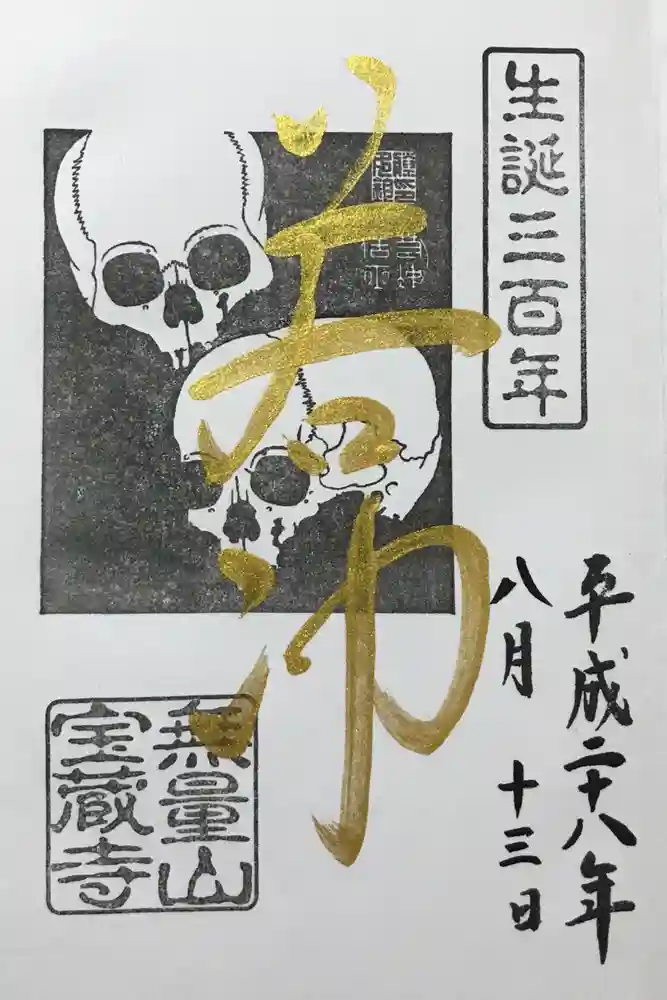 生誕三百年
若冲
平成二十八年
八月十三日
無量山
宝蔵寺